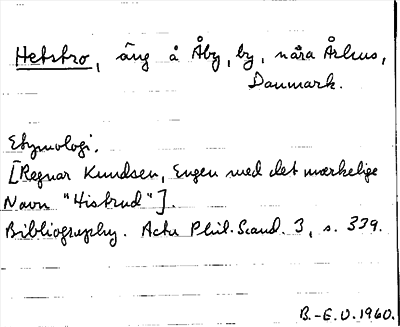 Hetstro, äng å Åby, by, nära Århus,
Danmark.
Etymologi.
[Regnar Knudsen, Engen med det mærkelige
Navn "Histrud"].
Bibliography. Acta Phil. Scand. 3, s. 339.
B.-E.U. 1960.